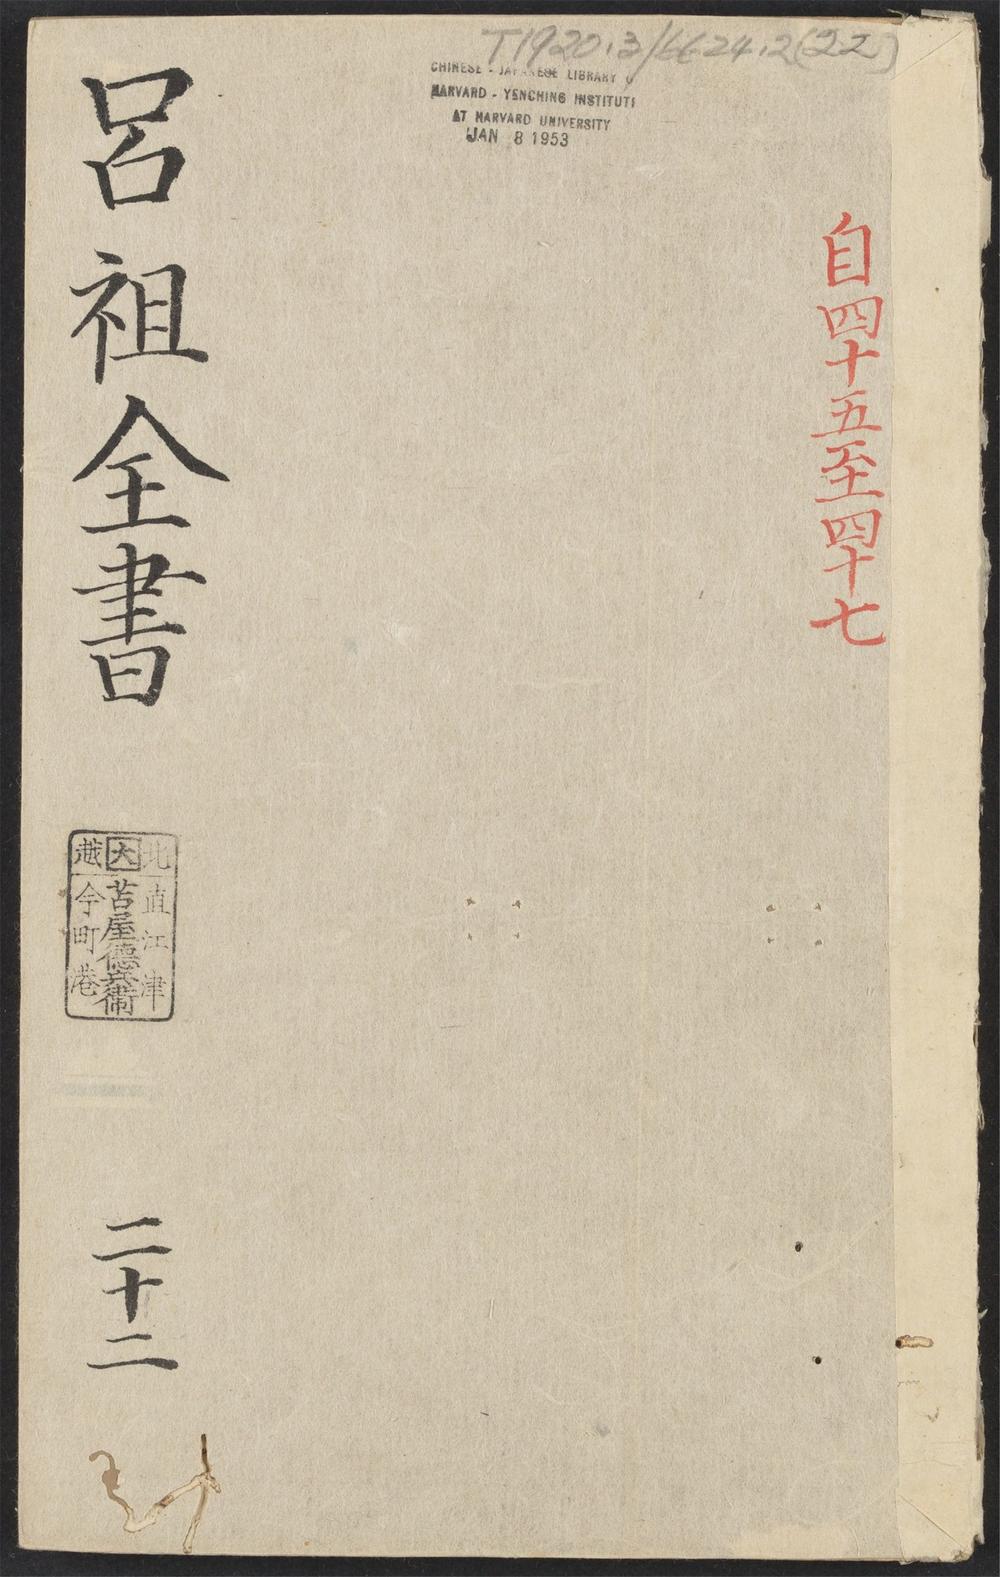 T1920.3/6624.2(22)
CHINESE - JAPANESE LIBRARY
HARVARD - YENCHING INSTITUTI
AT HARVARD UNIVERSITY
JAN 8 1953
自四十五至四十七
呂祖全書
北越
大
直江津
苫屋德兵衞
今町港
二十二